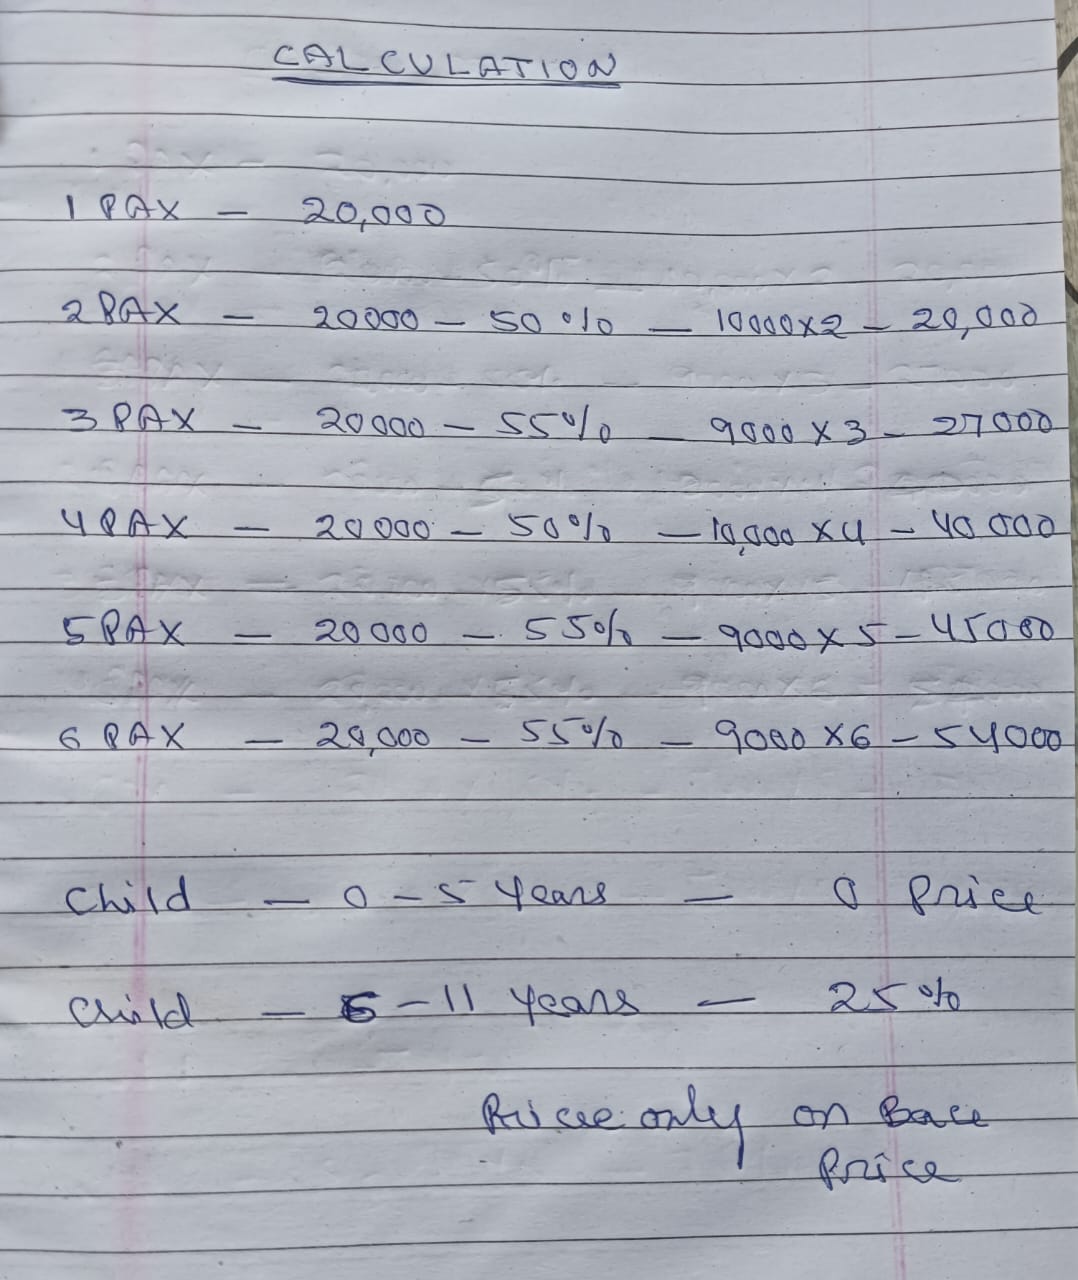 CALCULATION
1 PAX - 20,000
2 PAX - 20000 - 50% - 10000x2 - 20,000
3 PAX - 20000 - 55% - 9000 x 3 - 27000
4 PAX - 20000 - 50% - 10,000 x 4 - 40 000
5 PAX - 20000 - 55% - 9000 x 5 - 45000
6 PAX - 20,000 - 55% - 9000 x 6 - 54000
Child - 0 - 5 Years - 0 Price
Child - 5 - 11 Years - 25%
Price only on Base
Price